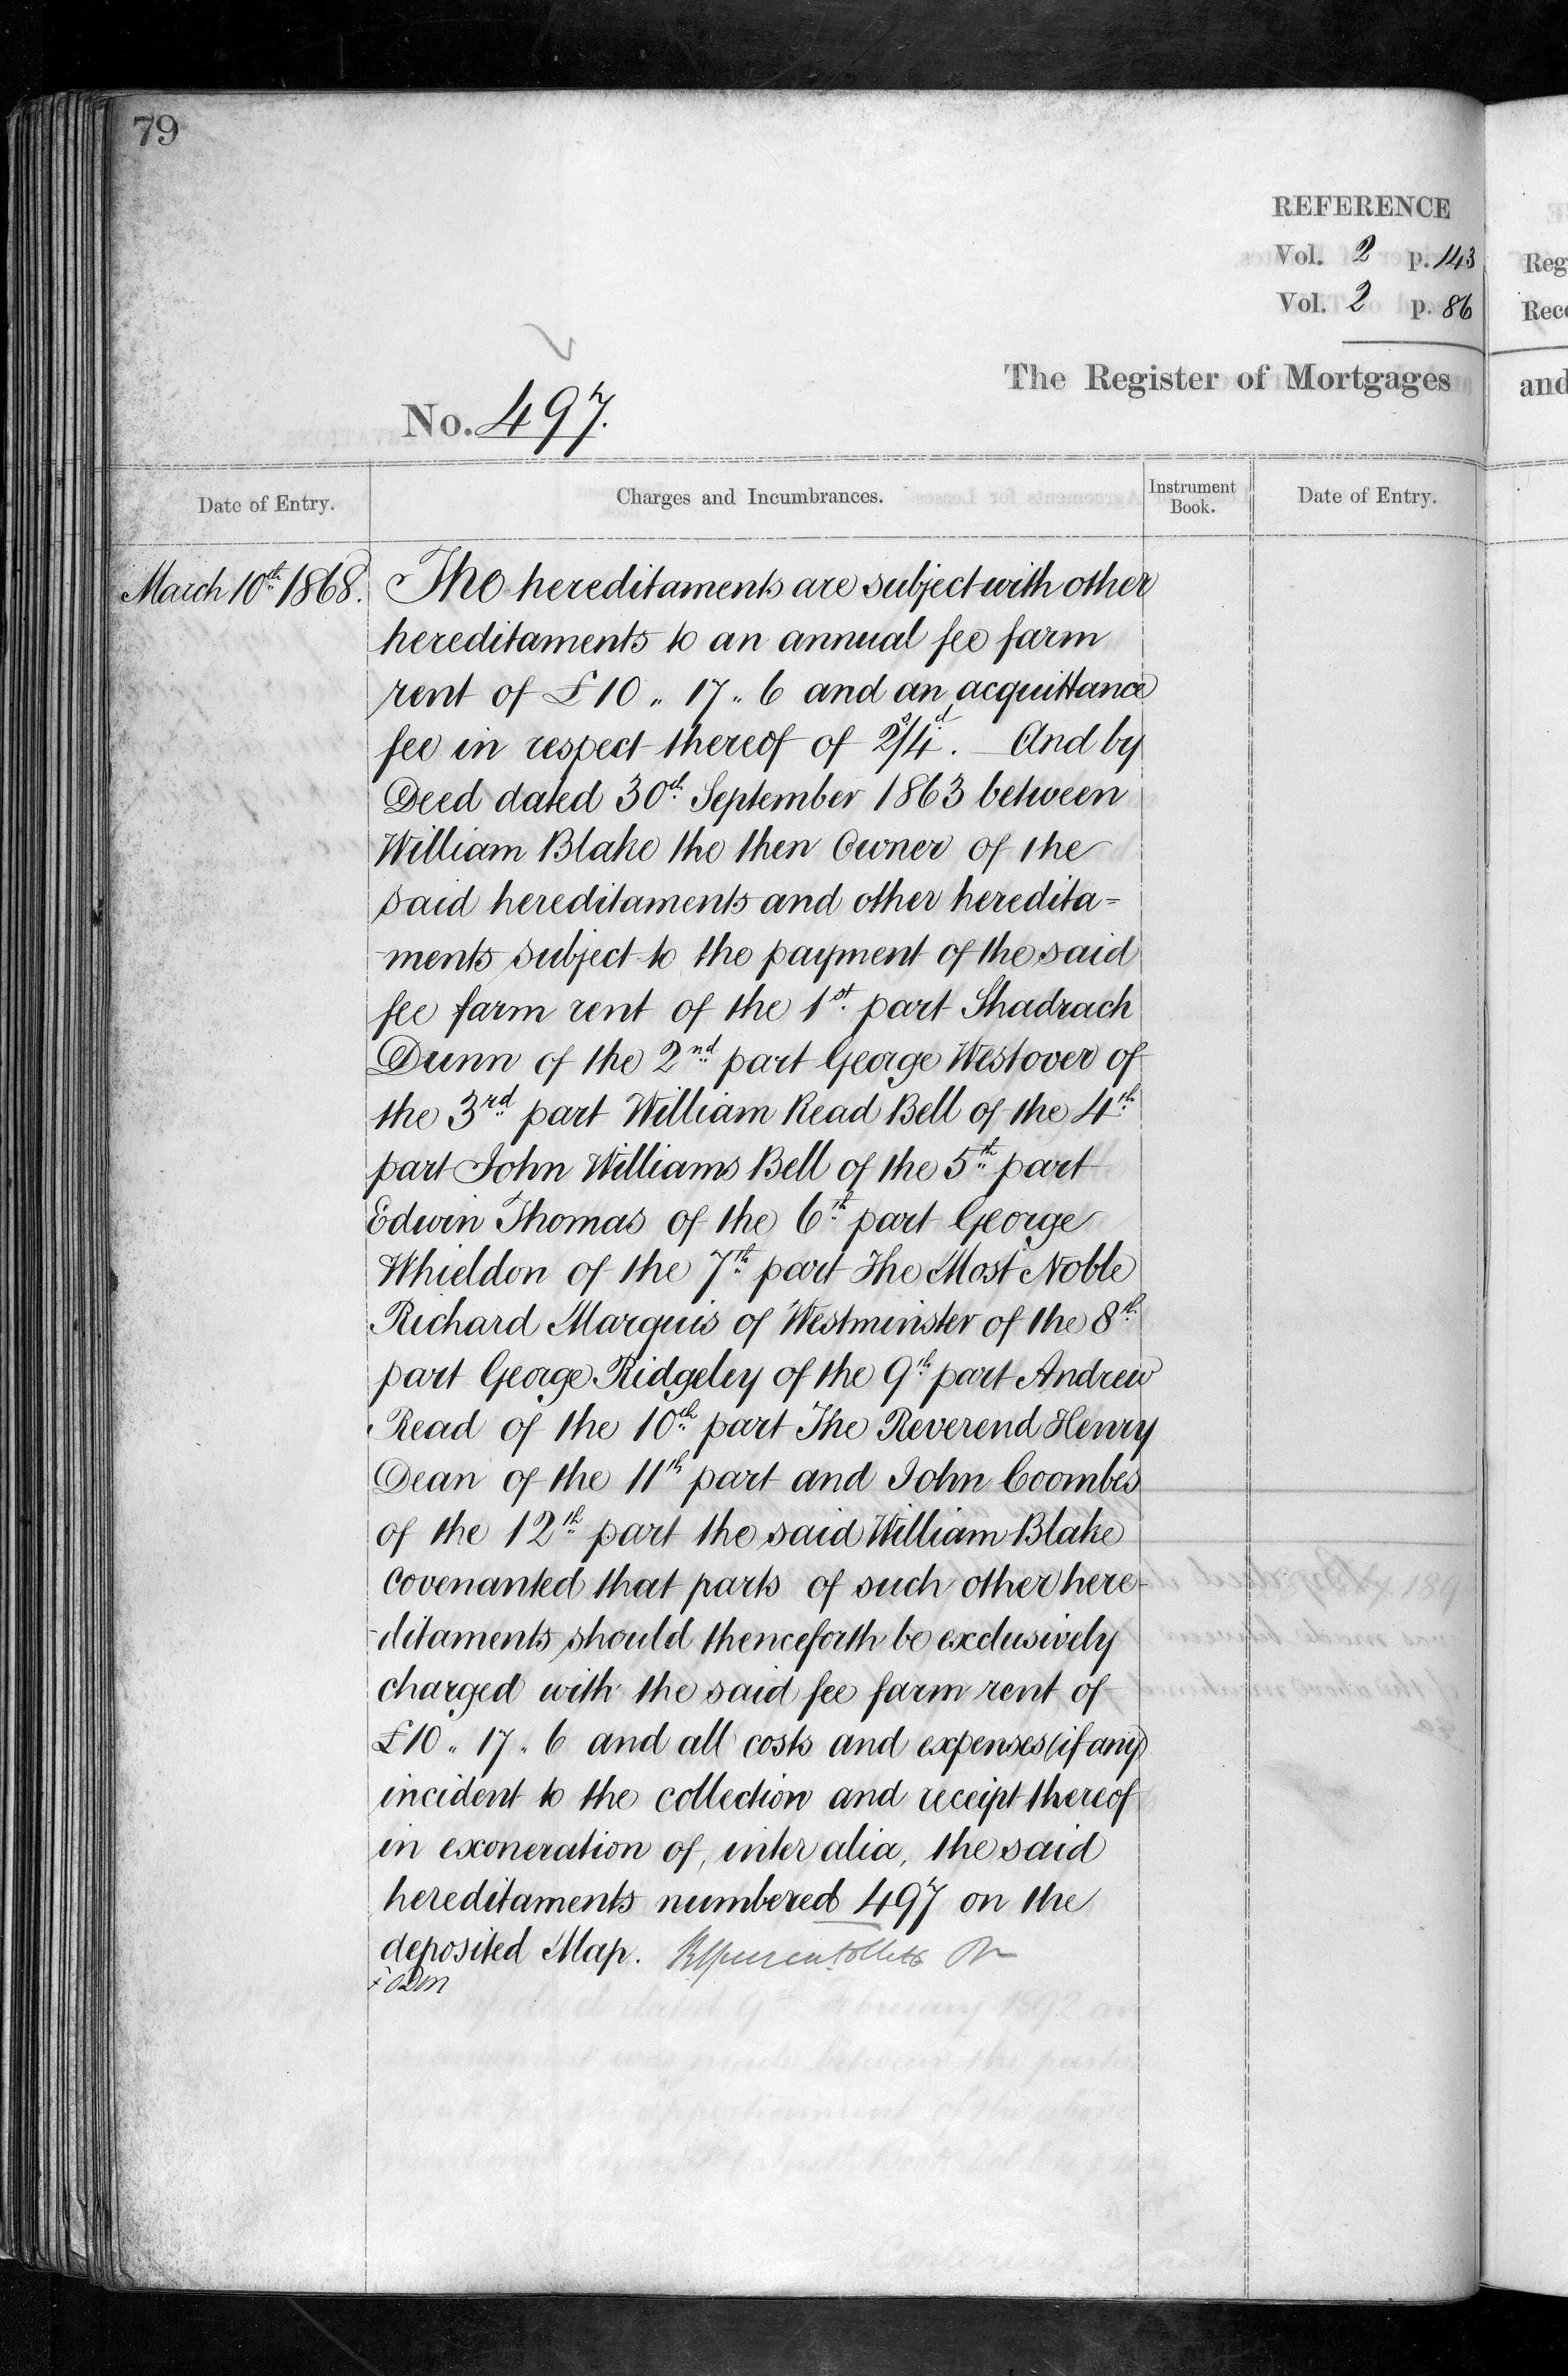 79
REFERENCE
Vol. 2 p. 143
Vol. 2 p. 86
The Register of Mortgages
No. 497.
Date of Entry.
Charges and Incumbrances.
Instrument
Book.
Date of Entry.
March 10th 1868.
The hereditaments are subject with other
hereditaments to an annual fee farm
rent of £10 „ 17 „ 6 and an acquittance
fee in respect thereof of 2s/4d. And by
Deed dated 30th September 1863 between
William Blake the then Owner of the
said hereditaments and other heredita=
ments subject to the payment of the said
fee farm rent of the 1st part Shadrach
Dunn of the 2nd part George Westover of
the 3rd part William Read Bell of the 4th
part John Williams Bell of the 5th part
Edwin Thomas of the 6th part George
Whieldon of the 7th part The Most Noble
Richard Marquis of Westminster of the 8th
part George Ridgeley of the 9th part Andrew
Read of the 10th part The Reverend Henry
Dean of the 11th part and John Coombes
of the 12th part the said William Blake
covenanted that parts of such other here-
-ditaments should thenceforth be exclusively
charged with the said fee farm rent of
£10 „ 17 „ 6 and all costs and expenses (if any)
incident to the collection and receipt thereof
in exoneration of, inter alia, the said
hereditaments numbered 497 on the
deposited Map.
Reg
Rec
and